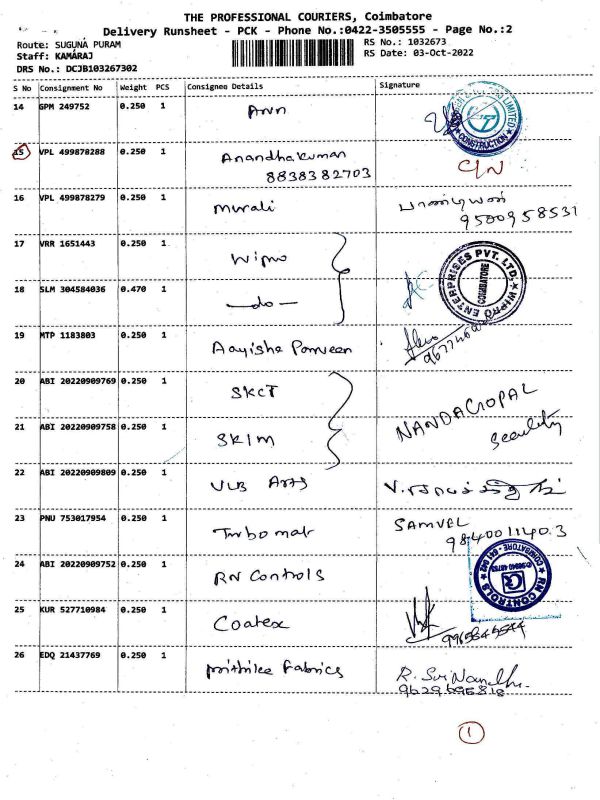 THE PROFESSIONAL COURIERS, Coimbatore
Delivery Runsheet - PCK - Phone No.:0422-3505555 - Page No.:2
Route: SUGUNA PURAM
RS No.: 1032673
Staff: KAMARAJ
RS Date: 03-Oct-2022
DRS No.: DCJB103267302
S No Consignment No Weight PCS Consignee Details Signature
14 GPM 249752 0.250 1
CONSTRUCTION
15 VPL 499878288 0.250 1 Anandhakumar
8838382703 C/N
16 VPL 499878279 0.250 1 Murali பாண்டியன்
9500958531
17 VRR 1651443 0.250 1 Wipro
WIPRO ENTERPRISES PVT. LTD.
COIMBATORE
18 SLM 304584036 0.470 1 -do-
19 MTP 1183803 0.250 1 Aayisha Parveen
20 ABI 20220909769 0.250 1 SKCT NANDAGOPAL
21 ABI 20220909758 0.250 1 SKIM Security
22 ABI 20220909809 0.250 1 VLB Arts
23 PNU 753017954 0.250 1 Turbomat SAMVEL
9840011403
24 ABI 20220909752 0.250 1 RN Controls
RN CONTROLS
COIMBATORE - 641 042
25 KUR 527710984 0.250 1 Coatex
26 EDQ 21437769 0.250 1 Prithika Fabrics R. Sri Nandhi.
9629695818
1